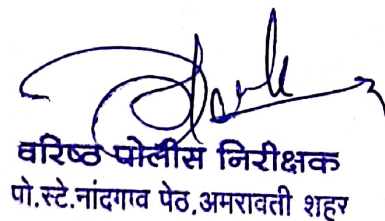 वरिष्ठ पोलीस निरीक्षक
पो.स्टे.नांदगाव पेठ,अमरावती शहर